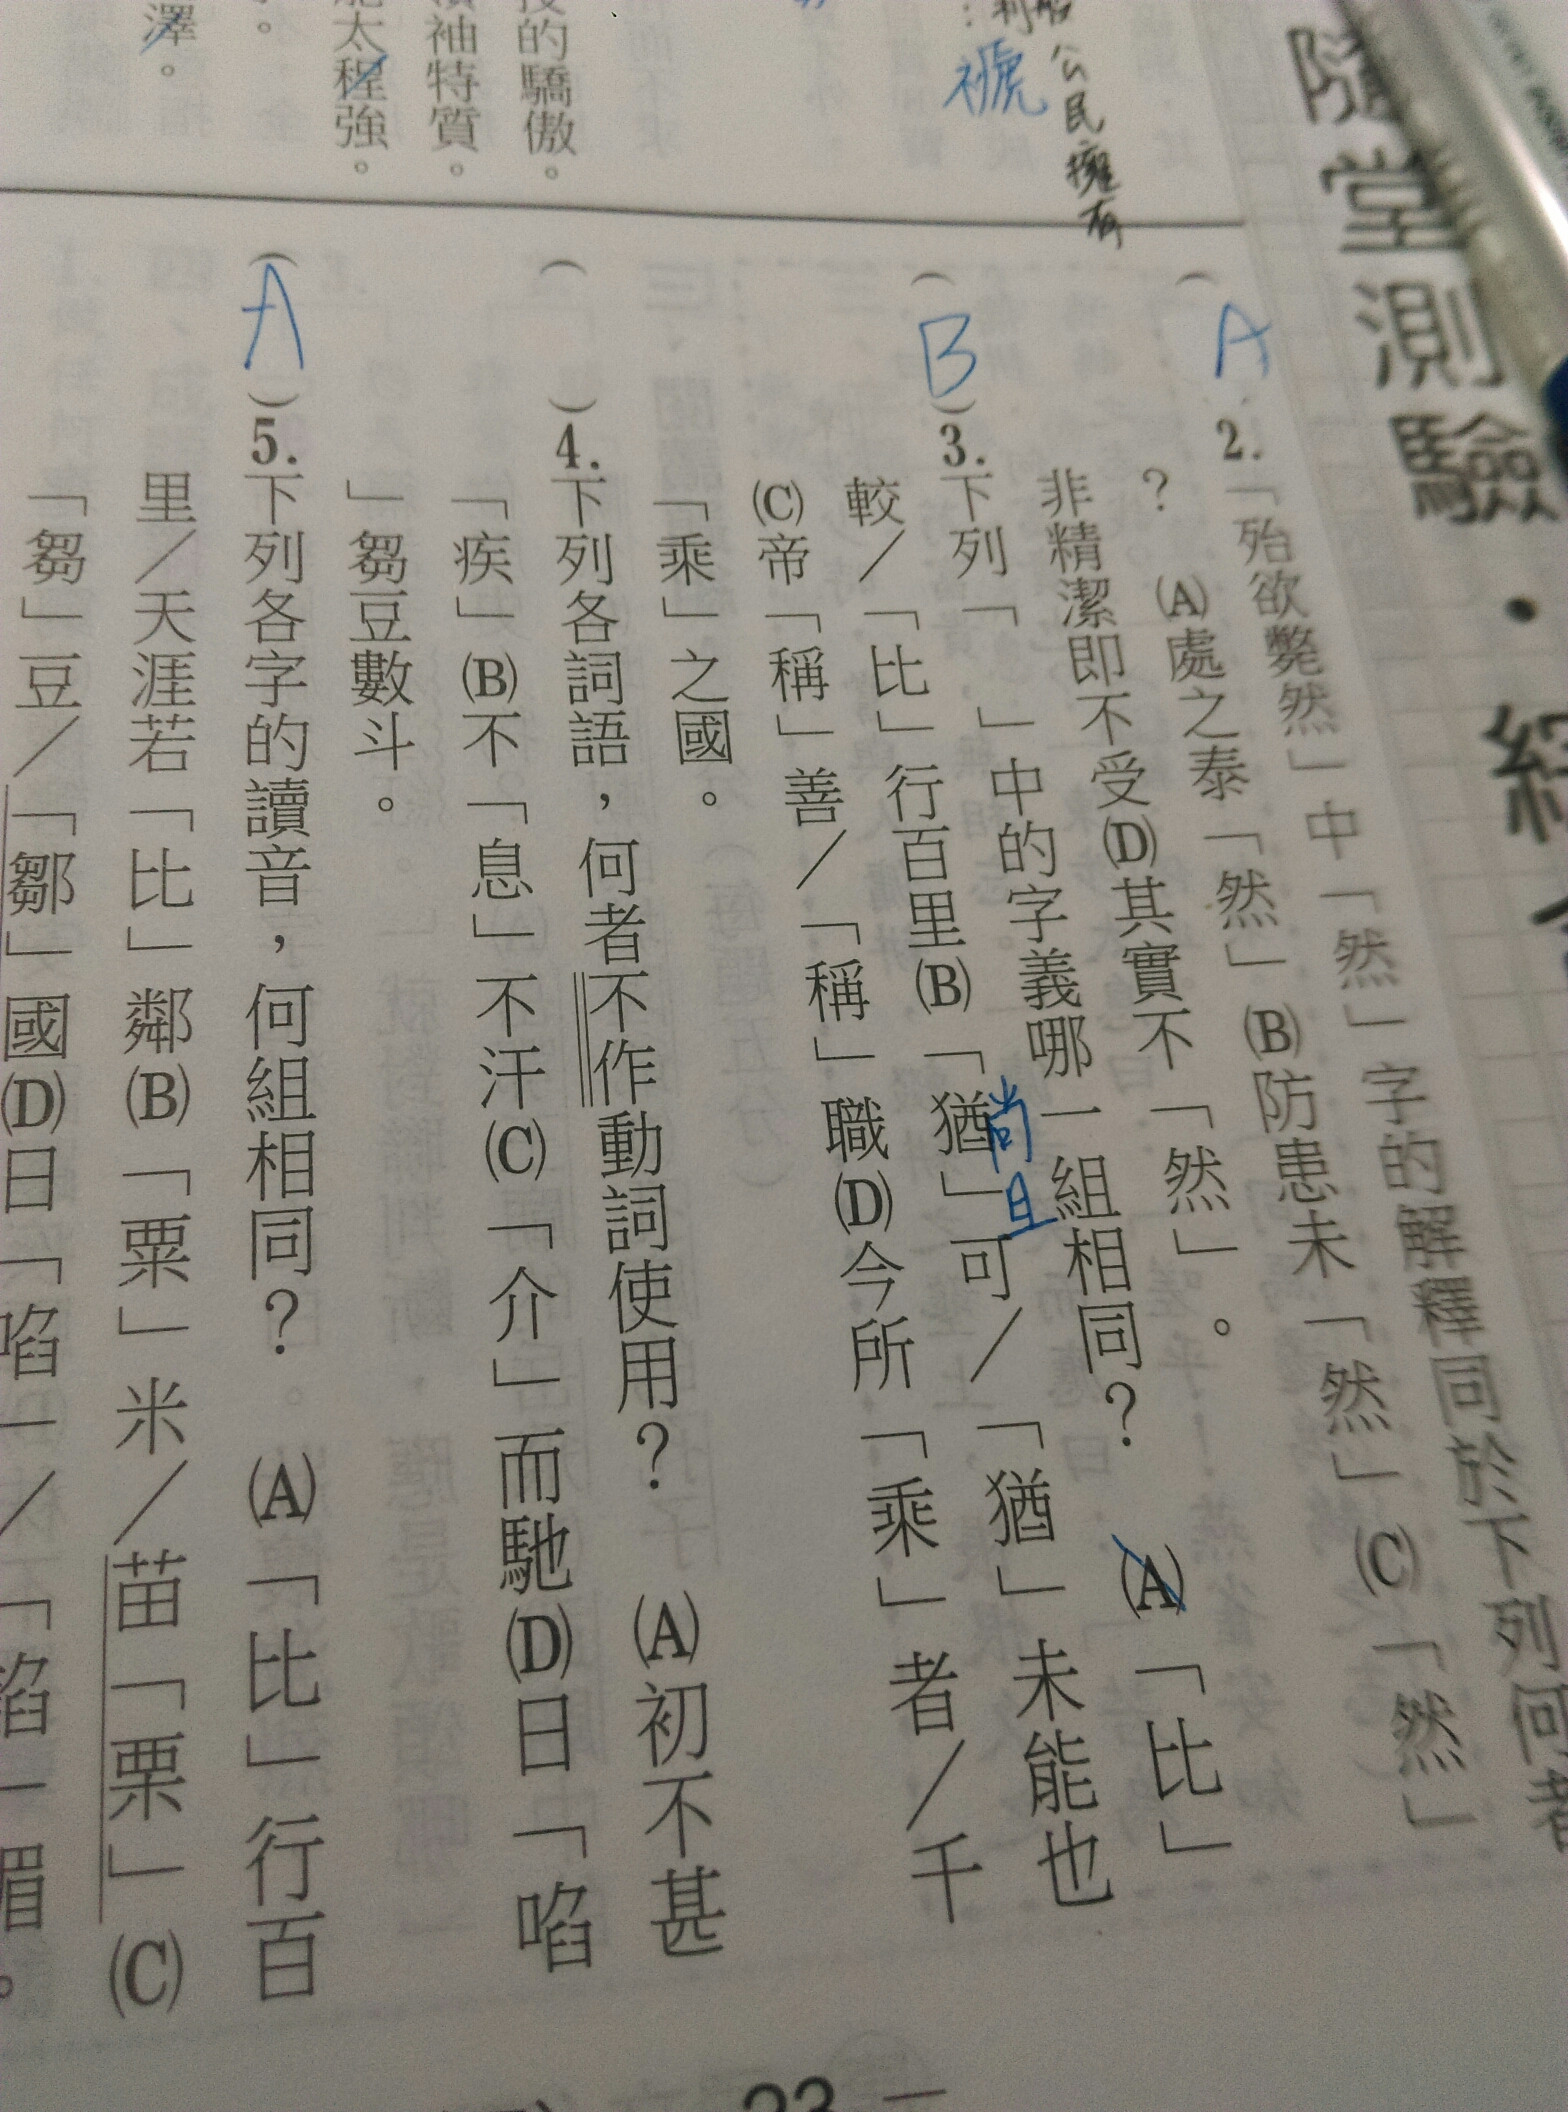 隨堂測驗・經
A
2.「殆欲斃然」中「然」字的解釋同於下列何者
？ (A)處之泰「然」(B)防患未「然」(C)「然」
非精潔即不受(D)其實不「然」。
B
3.下列「 」中的字義哪一組相同？ (A)「比」
較／「比」行百里(B)「猶」可／「猶」未能也
尚且
(C)帝「稱」善／「稱」職(D)今所「乘」者／千
「乘」之國。
( )4.下列各詞語，何者不作動詞使用？ (A)初不甚
「疾」(B)不「息」不汗(C)「介」而馳(D)日「啗
」芻豆數斗。
(A)5.下列各字的讀音，何組相同？ (A)「比」行百
里／天涯若「比」鄰(B)「粟」米／苗「栗」(C)
「芻」豆／「鄒」國(D)日「啗」／「諂」媚。
公民擁有
褫
的驕傲。
袖特質。
太程強。
澤。
23